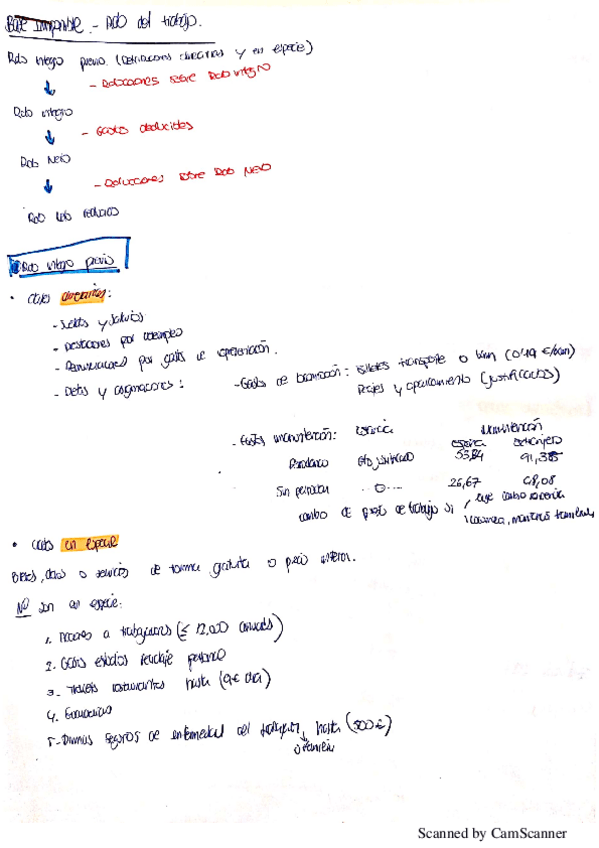 Base Imponible.- Rdo del trabajo.
Rdo íntegro previo. (Retribuciones dinerarias y en especie)
- Reducciones sobre Rdo íntegro
Rdo íntegro
- Gastos deducibles
Rdo Neto
- Reducciones sobre Rdo Neto
Rdo Neto reducido
Rdo íntegro previo
• Rdos dinerarios:
- Sueldos y Salarios
- Prestaciones por desempleo
- Remuneraciones por gastos de representación.
- Dietas y asignaciones:
- Gastos de locomoción: Billetes transporte o km (0'19 €/km)
Peajes y aparcamiento (justificados)
- Gastos manutención: Estancia Manutención
España Extranjero
Pernocta Gto justificado 53,34 91,35
Sin pernoctar 26,67 48,08
cambio de puesto de trabajo si
locomoción, manutención, traslado
• Rdos en especie
Bienes, dchos o servicios de forma gratuita o precio inferior.
No son en especie:
1. Acciones a trabajadores (≤ 12.000 anuales)
2. Gastos estudios reciclaje personal
3. Tickets restaurantes hasta (9€ día)
4. Economatos
5.- Primas seguros de enfermedad del trabajador, hasta (500€)
Scanned by CamScanner